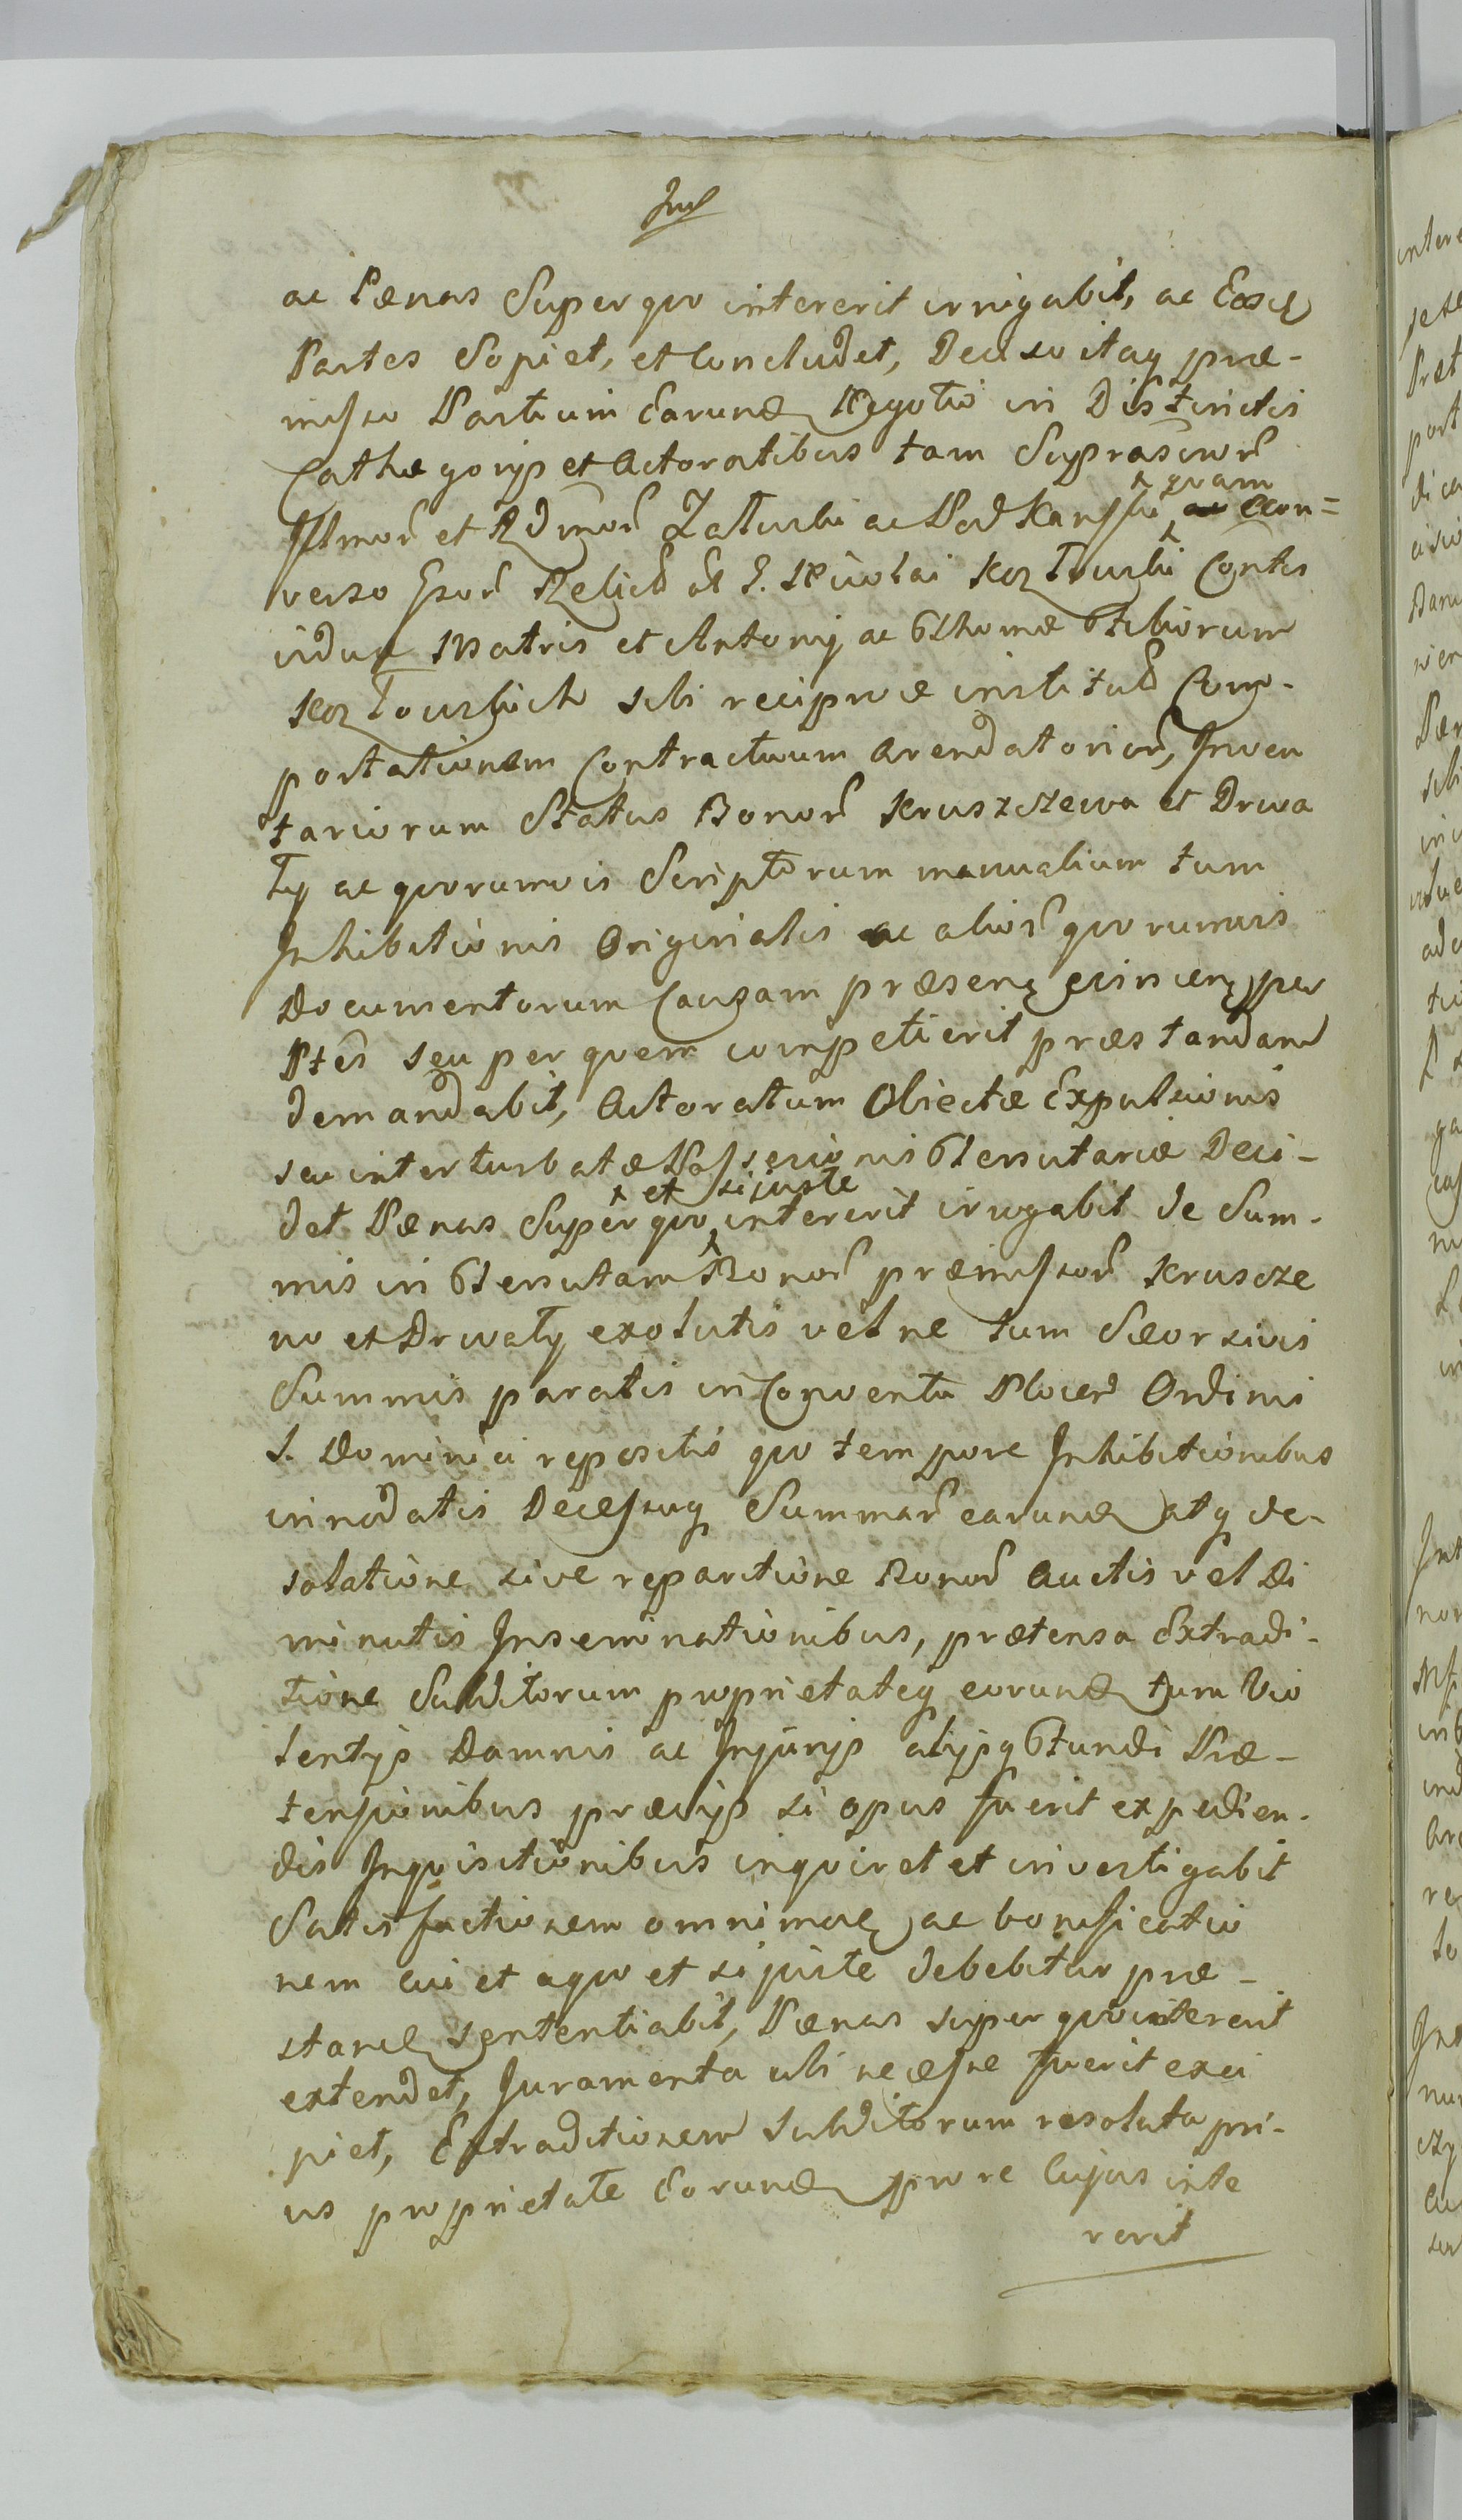 ac Pænas Super quo intererit irrigabit, ac Easd
Partes Sopiet, et Concludet, Deciso itaq præ-
misso Partium Earund Negotio in Distinctis
Cathegorijs et Actoratibus tam Suprascror
Illmor et Rdmor Zaturski ac Podkanski quam econ=
verso Gsor Relict ol G. Nicolai Kozłowski Contis
viduæ Matris et Antonij ac Thomæ Filiorum
Kozłowskich sibi reciproce institut Com-
portationem Contractuum Arendatorior, Inven
tariorum Status Bonor Kruszczewa et Drwa
ły ac quorumvis Scriptorum manualium tum
Inhibitionis Originalis ac alior quorumvis
Documentorum Causam præsen evincen per
Ptes seu per quem competierit præstandam
demandabit, Actoratum Obiectæ Expulsionis
seu interturbatæ Possessionis Tenutariæ Deci-
det Pænas Super quo et si juste intererit irrogabit de Sum-
mis in Tenutam Bonor præmissor Kruscze
wo et Drwały exolutis vel ne tum Seorsivis
Summis paratis in Conventu Plocen Ordinis
S. Dominici repositis quo tempore Inhibitionibus
innodatis Decessuq Summar earund atq de-
solatione sive reparatione Bonor Auctis vel di
minutis Inseminationibus, prætensa Extradi-
tione Subditorum proprietateq eorund tum Vio
lentijs Damnis ac Injurijs alijsq Fundi Præ-
tensionibus prævijs si opus fuerit expedien-
dis Inquisitionibus inquiret et investigabit
Satisfactionem omnimod ac bonificatio
nem cui et a quo et si juste debebitur præ-
stand sententiabit, Pænas super quo intererit
extendet, Juramenta ubi necesse fuerit exci
piet, Extraditionem Subditorum resoluta pri-
us proprietate Eorund pro re Cujus inte
rerit